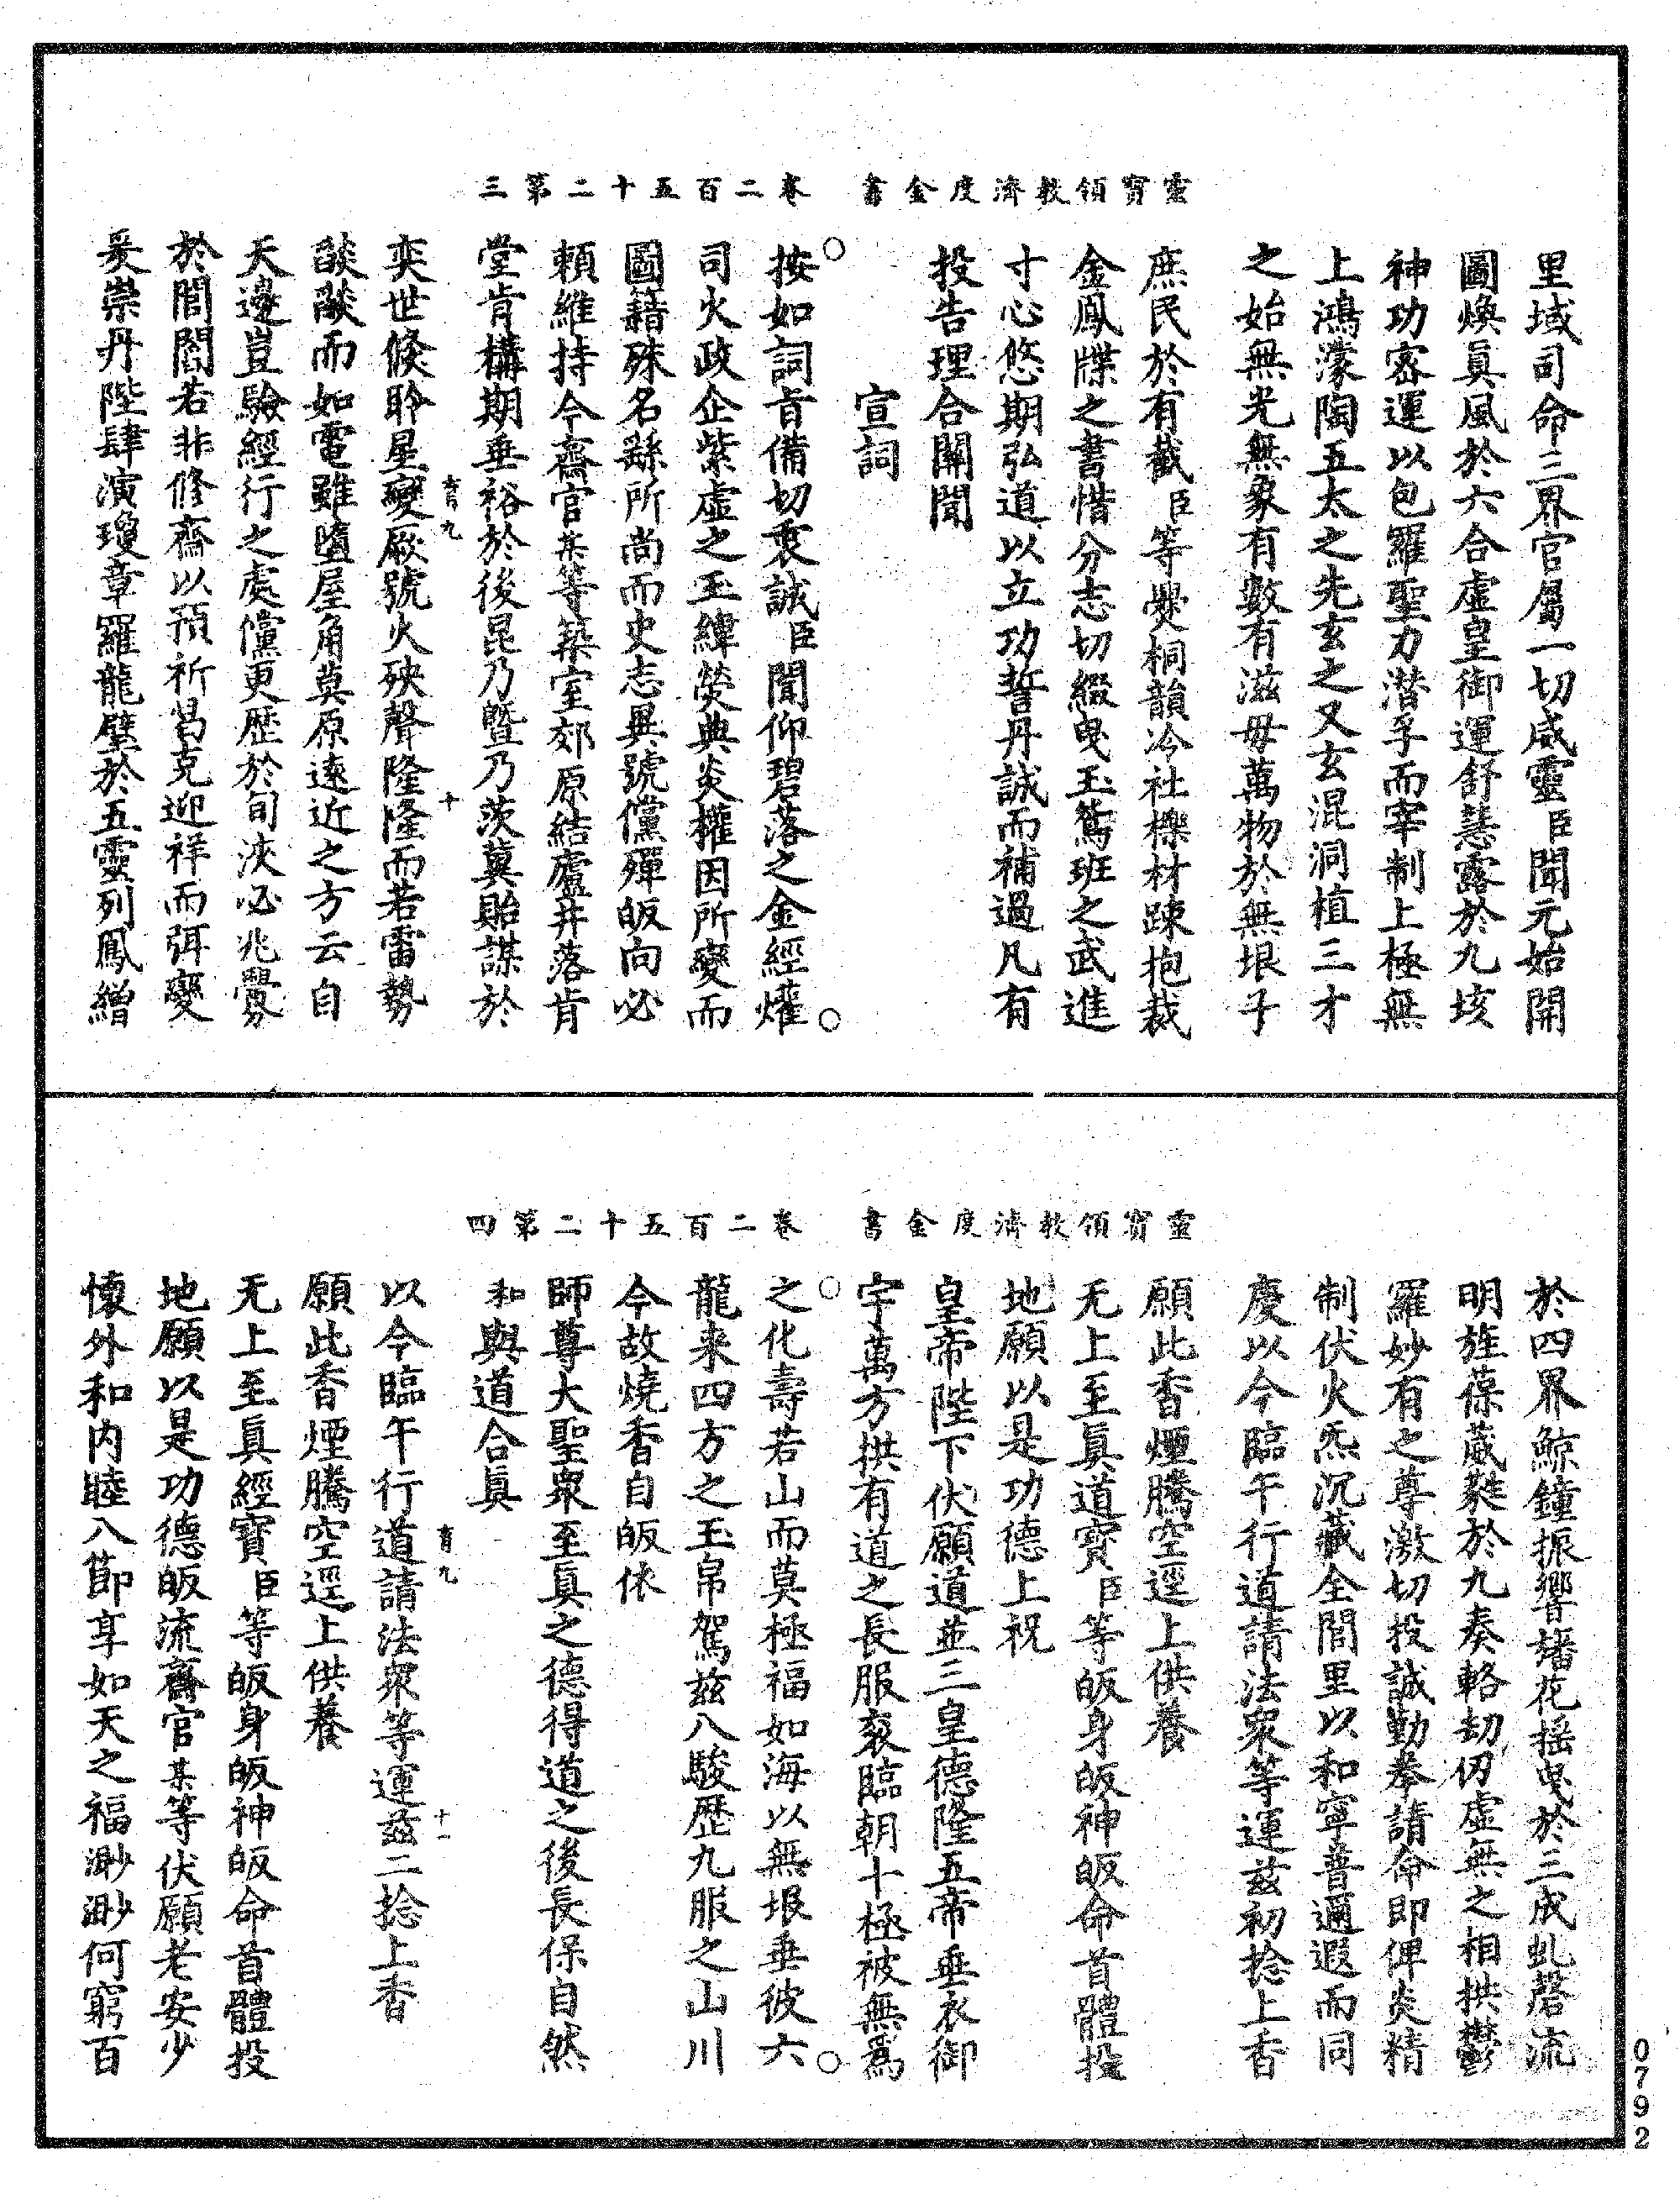 靈寶領教濟度金書　卷二百五十二第三
里域司命三界官屬一切威靈臣聞元始開
圖煥眞風於六合虛皇御運舒慧露於九垓
神功密運以包羅聖力潜孚而宰制上極無
上鴻濛陶五太之先玄之又玄混洞植三才
之始無光無象有數有滋毋萬物於無垠子
庶民於有截臣等爨桐韻冷社櫟材踈抱裁
金鳳牒之書惜分志切綴曳玉鴛班之武進
寸心悠期弘道以立功誓丹誠而補過凡有
投告理合關聞
宣詞
按如詞旨備切衷誠臣聞仰碧落之金經燿
司火政企紫虛之玉緯熒典炎權因所變而
圖籍殊名繇所尚而史志異號儻殫皈向必
頼維持今齋官某等築室郊原結廬井落肯
堂肯構期垂裕於後昆乃曁乃茨冀貽謀於
奕世倏聆星變厥號火殃聲隆隆而若雷勢
燄燄而如電雖墮屋角莫原遠近之方云自
天邊豈驗經行之處儻更歷於旬浹必兆釁
於閭閻若非修齋以預祈曷克迎祥而弭變
爰崇丹陛肆演瓊章羅龍壁於五靈列鳳繒
育九
十
靈寶領教濟度金書　卷二百五十二第四
於四界鯨鐘振響旛花摇曳於三成虬磬流
明旌葆葳蕤於九奏輅劫仞虛無之相拱鬱
羅妙有之尊激切投誠勤拳請命即俾炎精
制伏火炁沉藏全閭里以和寧普邇遐而同
慶以今臨午行道請法衆等運茲初捻上香
願此香煙騰空逕上供養
无上至眞道寶臣等皈身皈神皈命首體投
地願以是功德上祝
皇帝陛下伏願道並三皇德隆五帝垂衣御
宇萬方拱有道之長服衮臨朝十極被無爲
之化壽若山而莫極福如海以無垠垂彼六
龍来四方之玉帛駕茲八駿歷九服之山川
今故燒香自皈依
師尊大聖衆至眞之德得道之後長保自然
和與道合眞
以今臨午行道請法衆等運茲二捻上香
願此香煙騰空逕上供養
无上至眞經寶臣等皈身皈神皈命首體投
地願以是功德皈流齋官某等伏願老安少
懷外和内睦八節享如天之福渺渺何窮百
育九
十一
0792